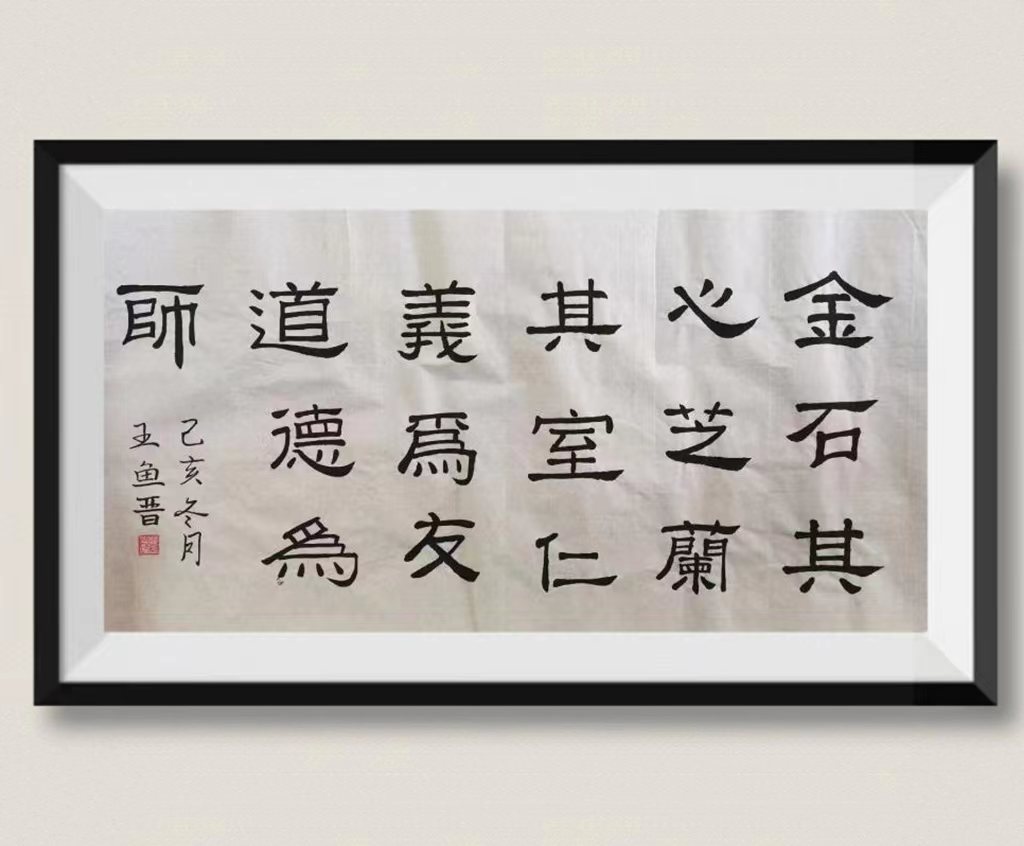 金石其
心芝蘭
其室仁
義爲友
道德爲
師
己亥冬月
王鱼晋